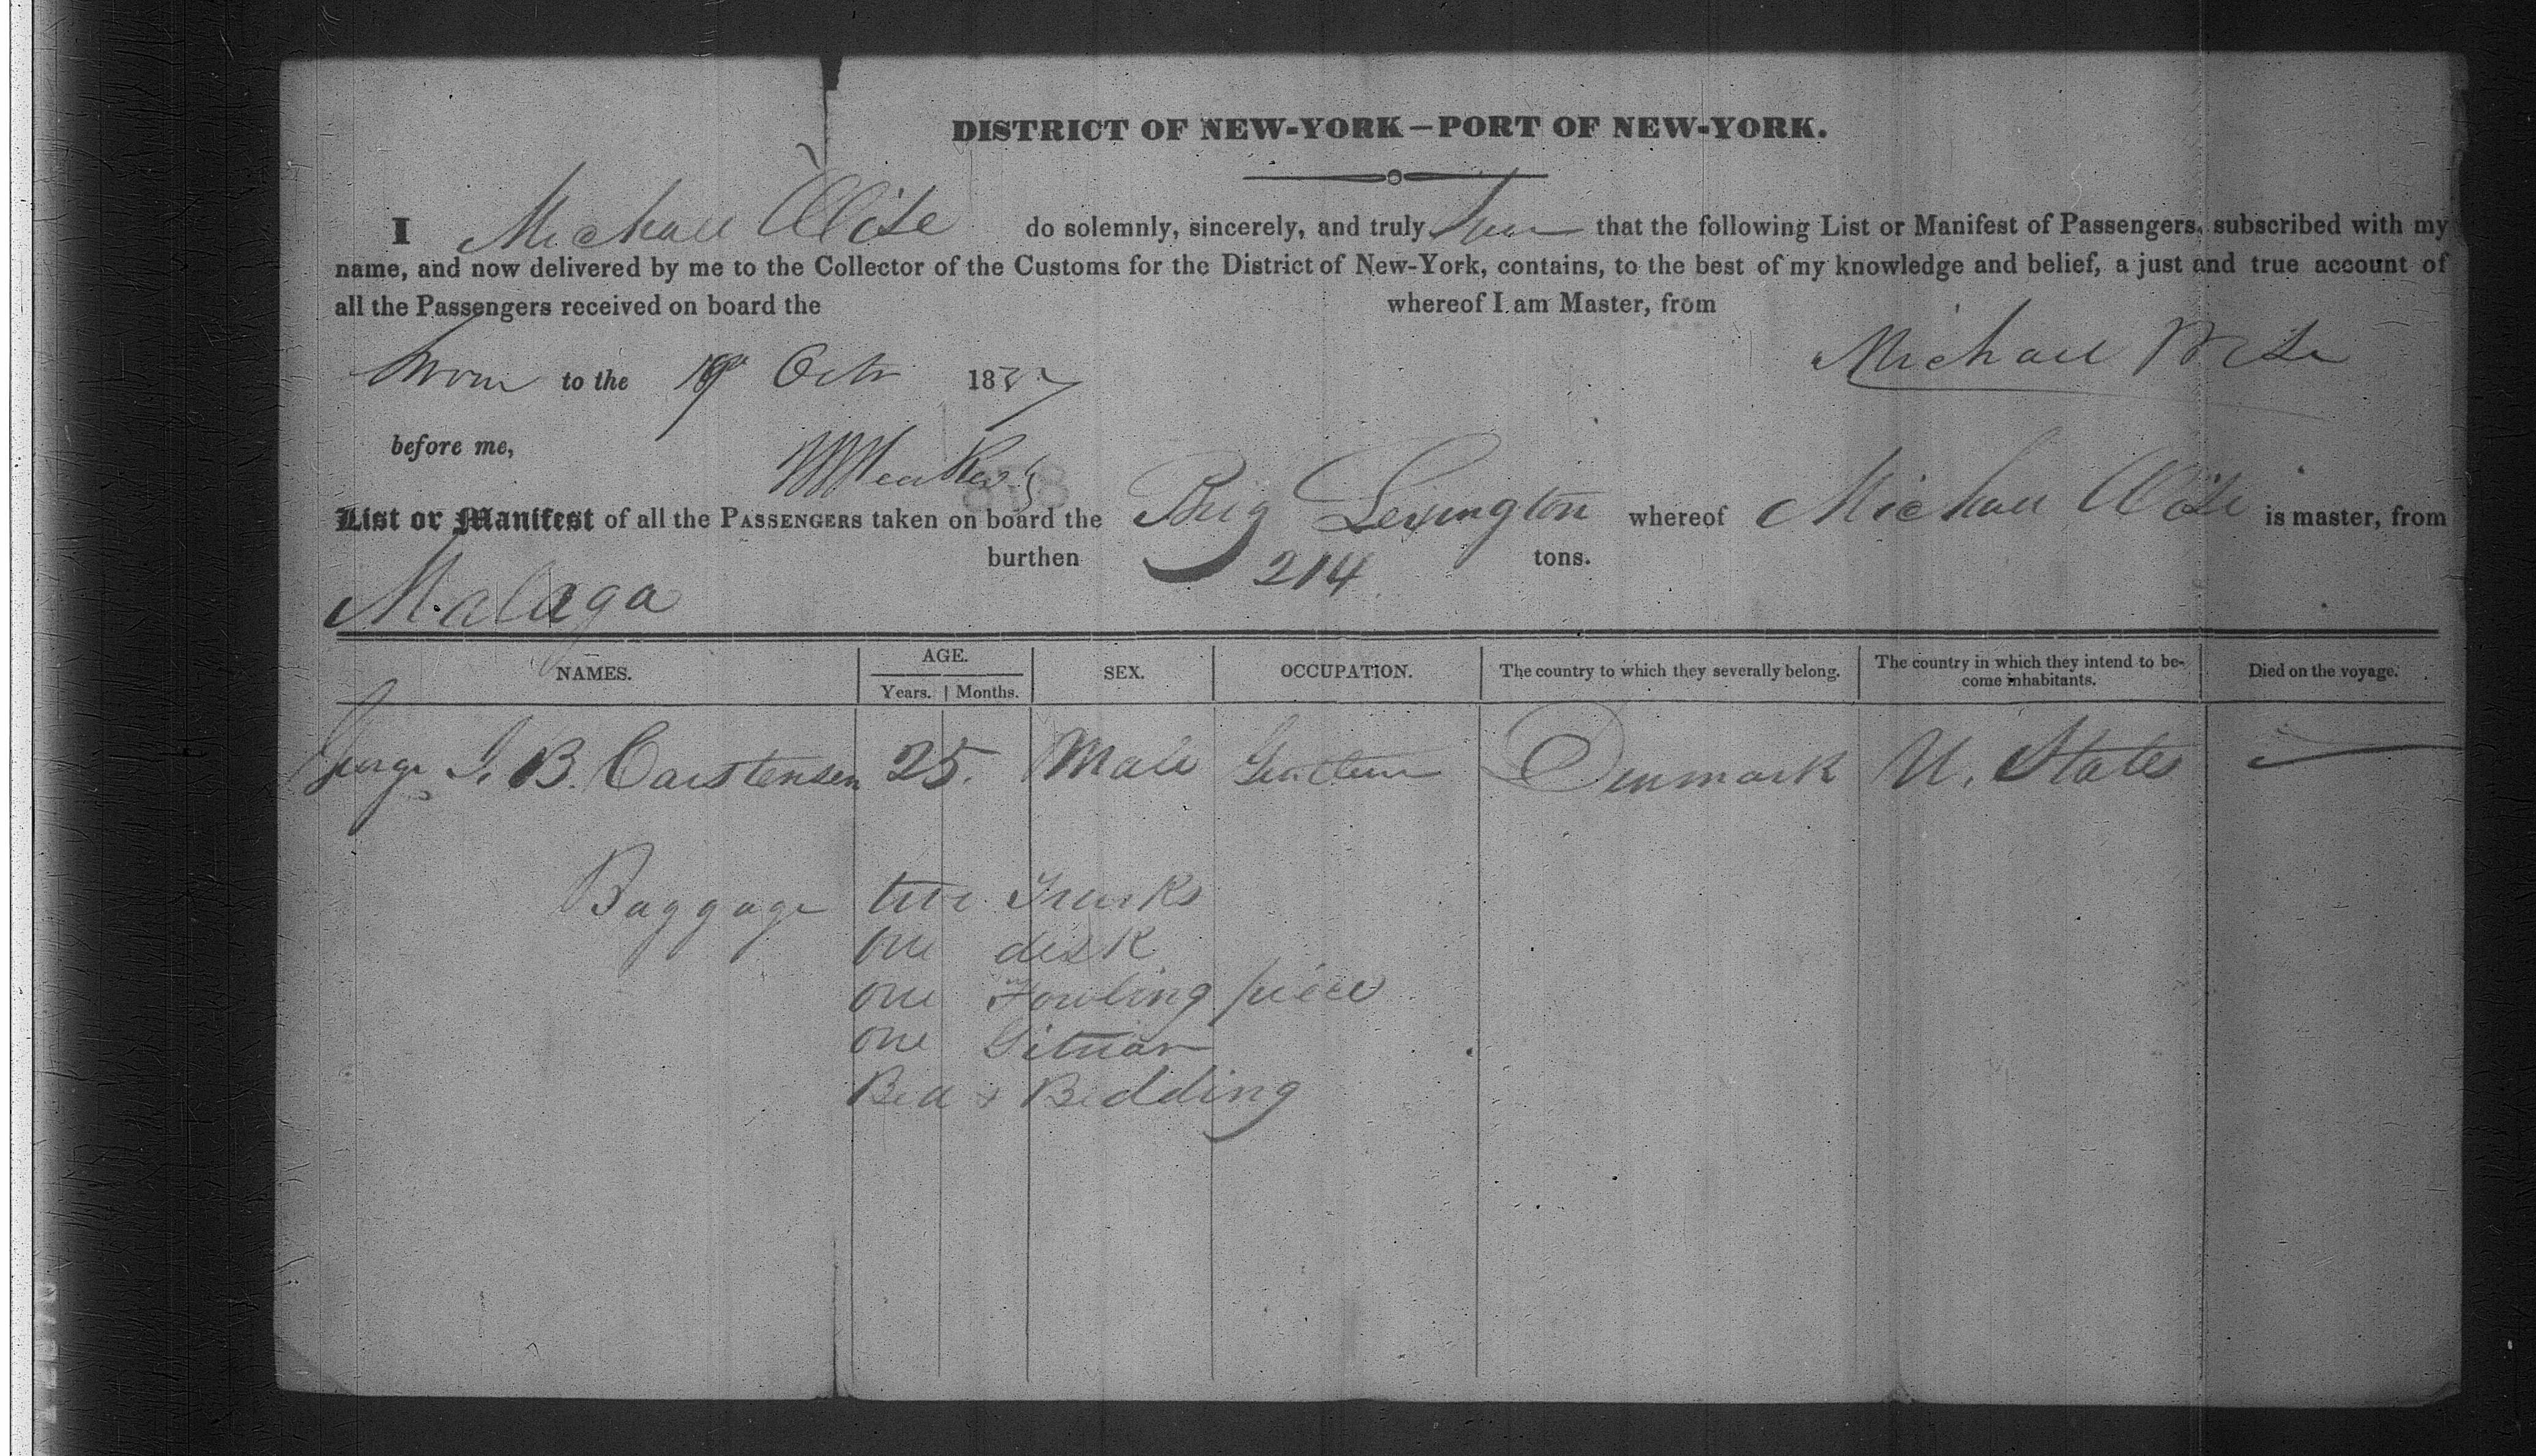 DISTRICT OF NEW-YORK—PORT OF NEW-YORK.
I Michael Wise do solemnly, sincerely, and truly that the following List or Manifest of Passengers, subscribed with my
name, and now delivered by me to the Collector of the Customs for the District of New-York, contains, to the best of my knowledge and belief, a just and true account of
all the Passengers received on board the whereof I am Master, from
Sworn to the 19 Octr 1837 Michael Wise
before me,
List or Manifest of all the PASSENGERS taken on board the Brig Lexington whereof Michael Wise is master, from
Malaga burthen 214 tons.
NAMES. AGE. SEX. OCCUPATION. The country to which they severally belong. The country in which they intend to be-
come inhabitants. Died on the voyage.
Years. Months.
George J. B. Carstensen 25. Male Denmark U. States
Baggage two Trunks
one desk
one Fowling piece
one Gituar
Bed & Bedding